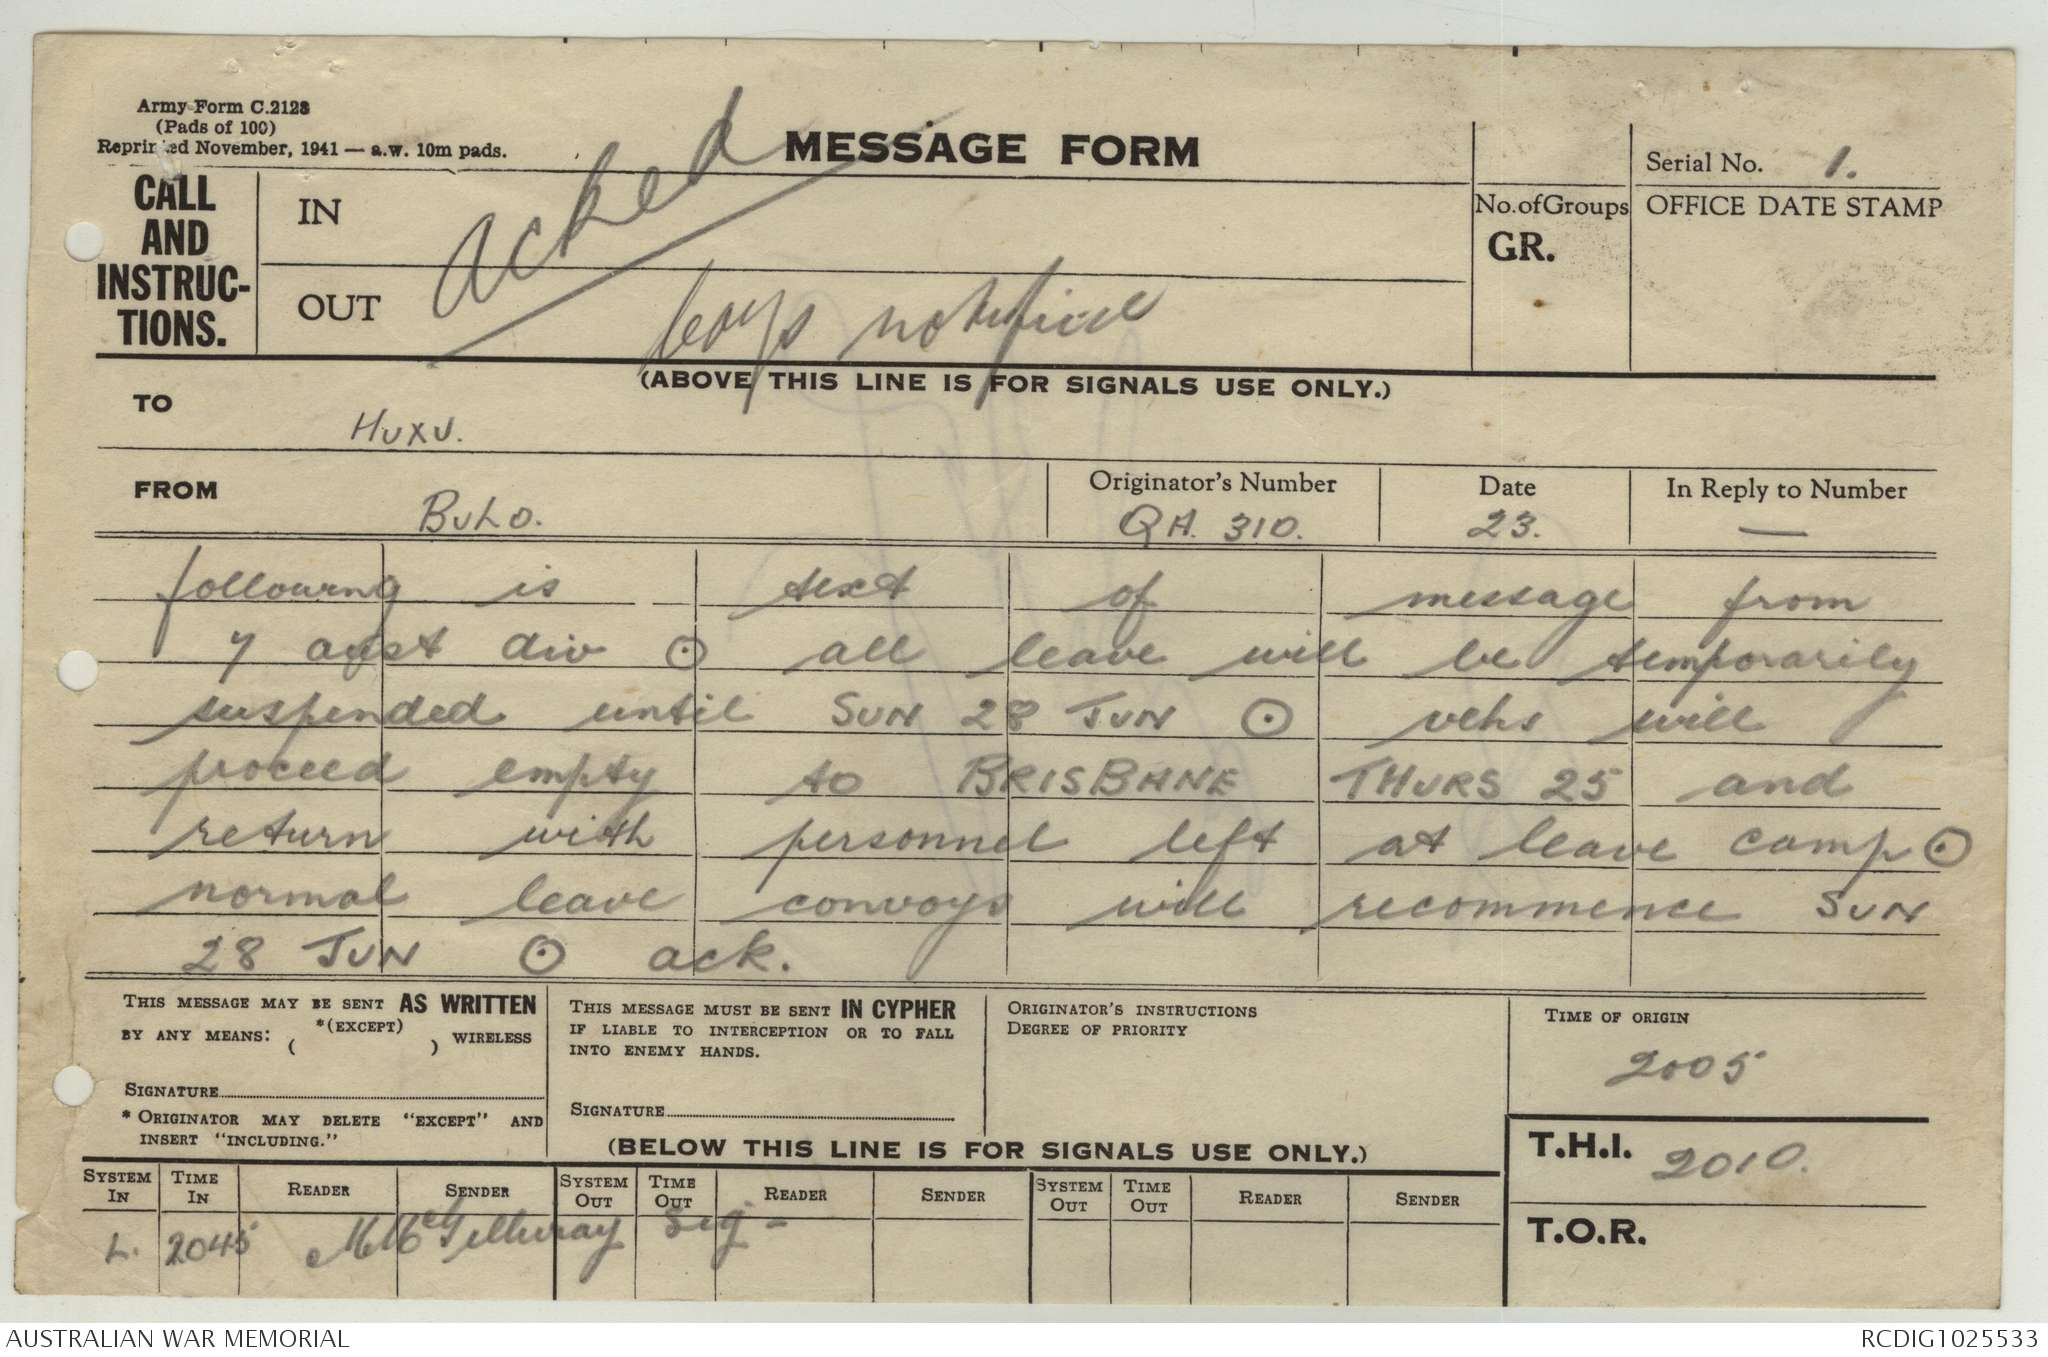 Army Form C.2128
(Pads of 100)
Reprinted November, 1941 — a.w. 10m pads.
MESSAGE FORM
Serial No. 1.
CALL AND INSTRUC-TIONS.
IN
acked
OUT
Coys notified
No. of Groups
GR.
OFFICE DATE STAMP
(ABOVE THIS LINE IS FOR SIGNALS USE ONLY.)
TO
HUXU.
FROM
BULO.
Originator's Number
QA. 310.
Date
23.
In Reply to Number
—
following is text of message from
7 aust div ⊙ all leave will be temporarily
suspended until SUN 28 JUN ⊙ vehs will
proceed empty to BRISBANE THURS 25 and
return with personnel left at leave camp ⊙
normal leave convoys will recommence SUN
28 JUN ⊙ ack.
THIS MESSAGE MAY BE SENT AS WRITTEN
BY ANY MEANS: *(EXCEPT) ( ) WIRELESS
SIGNATURE
* ORIGINATOR MAY DELETE "EXCEPT" AND
INSERT "INCLUDING."
THIS MESSAGE MUST BE SENT IN CYPHER
IF LIABLE TO INTERCEPTION OR TO FALL
INTO ENEMY HANDS.
SIGNATURE
ORIGINATOR'S INSTRUCTIONS
DEGREE OF PRIORITY
TIME OF ORIGIN
2005
(BELOW THIS LINE IS FOR SIGNALS USE ONLY.)
T.H.I. 2010.
T.O.R.
SYSTEM IN TIME IN READER SENDER SYSTEM OUT TIME OUT READER SENDER SYSTEM OUT TIME OUT READER SENDER
L. 2045 McGillivray Sig -
AUSTRALIAN WAR MEMORIAL
RCDIG1025533